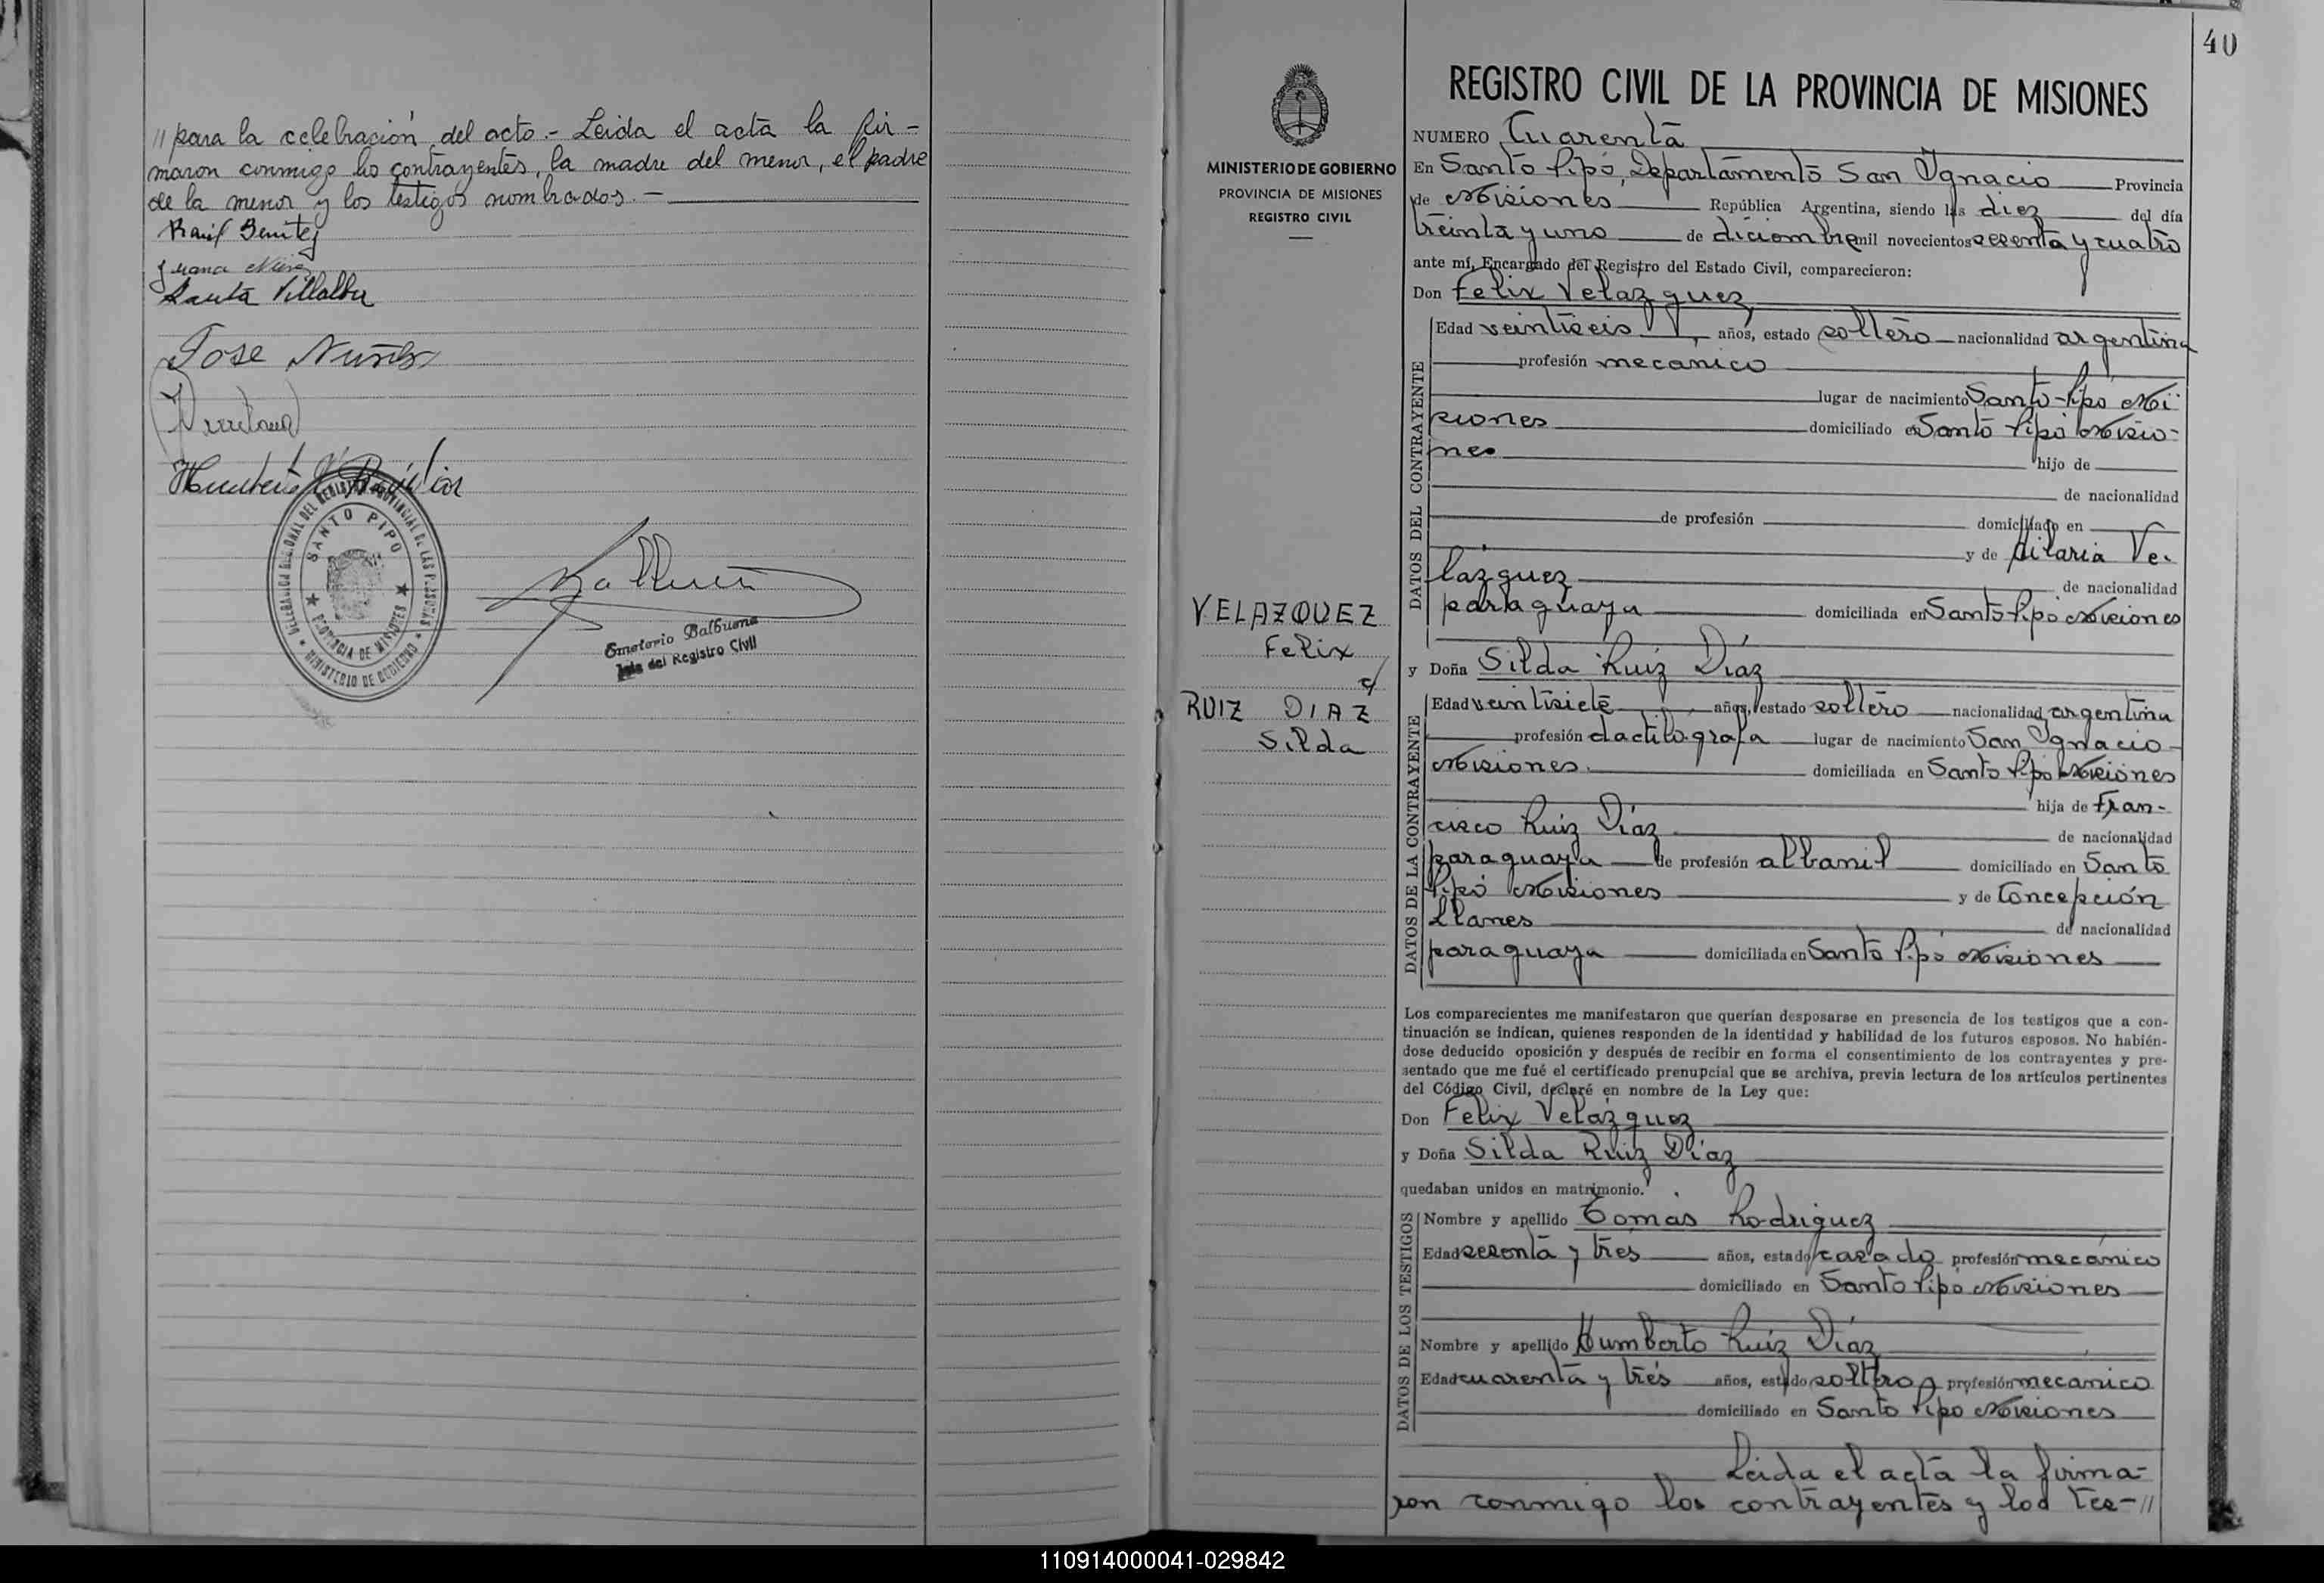 // para la celebración del acto.- Leida el acta la fir-
maron conmigo los contrayentes, la madre del menor, el padre
de la menor y los testigos nombrados.-
Raúl Benitez
Juana
Santa Villalba
Jose Nuñez
DELEGACION REGIONAL DEL REGISTRO PROVINCIAL DE LAS PERSONAS
SANTO PIPO
PROVINCIA DE MISIONES
MINISTERIO DE GOBIERNO
Emeterio Balbuena
Jefe del Registro Civil
40
MINISTERIO DE GOBIERNO
PROVINCIA DE MISIONES
REGISTRO CIVIL
VELAZQUEZ
Felix
c/
RUIZ DIAZ
Silda
REGISTRO CIVIL DE LA PROVINCIA DE MISIONES
NUMERO Cuarenta
En Santo Pipó, Departamento San Ignacio Provincia
de Misiones República Argentina, siendo las diez del día
treinta y uno de diciembre mil novecientos sesenta y cuatro
ante mí, Encargado del Registro del Estado Civil, comparecieron:
Don Felix Velazquez
DATOS DEL CONTRAYENTE
Edad veintiseis años, estado soltero nacionalidad argentina
profesión mecanico
lugar de nacimiento Santo Pipó Mi-
siones domiciliado en Santo Pipó Misio-
nes hijo de
de nacionalidad
de profesión domiciliado en
y de Hilaria Ve-
lázquez de nacionalidad
paraguaya domiciliada en Santo Pipó Misiones
y Doña Silda Ruiz Díaz
DATOS DE LA CONTRAYENTE
Edad veintisiete años, estado soltero nacionalidad argentina
profesión dactilografa lugar de nacimiento San Ignacio-
Misiones. domiciliada en Santo Pipó Misiones
hija de Fran-
cisco Ruiz Díaz de nacionalidad
paraguaya de profesión albanil domiciliado en Santo
Pipó Misiones y de Concepción
Llanes de nacionalidad
paraguaya domiciliada en Santo Pipó Misiones
Los comparecientes me manifestaron que querían desposarse en presencia de los testigos que a con-
tinuación se indican, quienes responden de la identidad y habilidad de los futuros esposos. No habién-
dose deducido oposición y después de recibir en forma el consentimiento de los contrayentes y pre-
sentado que me fué el certificado prenupcial que se archiva, previa lectura de los artículos pertinentes
del Código Civil, declaré en nombre de la Ley que:
Don Felix Velázquez
y Doña Silda Ruiz Díaz
quedaban unidos en matrimonio.
DATOS DE LOS TESTIGOS
Nombre y apellido Tomás Rodriguez
Edad sesenta y tres años, estado casado profesión mecánico
domiciliado en Santo Pipó Misiones
Nombre y apellido Humberto Ruiz Díaz
Edad cuarenta y trés años, estado soltero profesión mecanico
domiciliado en Santo Pipó Misiones
Leida el acta la firma-
ron conmigo los contrayentes y los tes-//
110914000041-029842